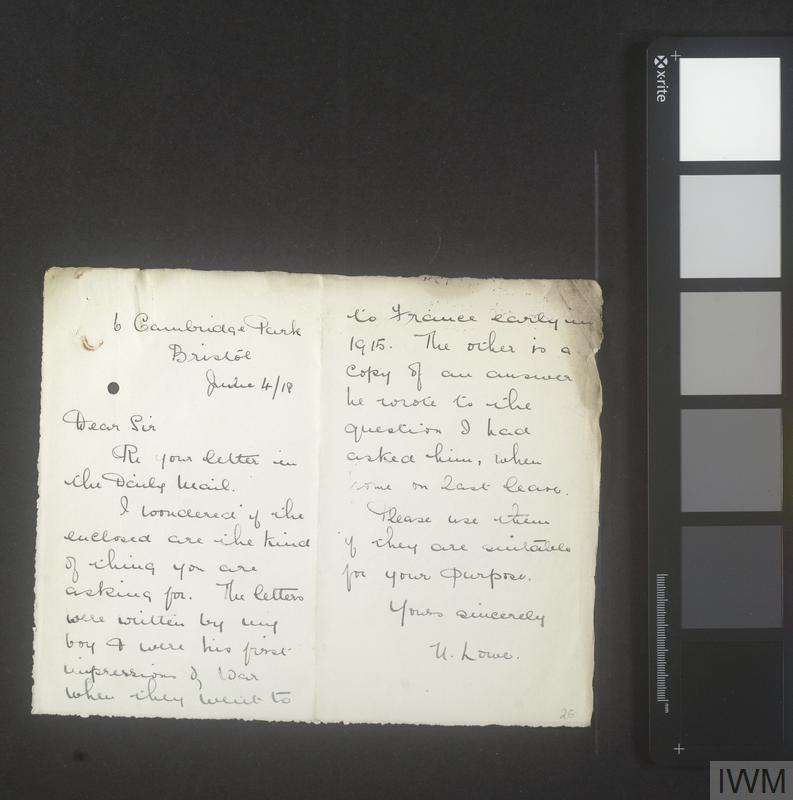 6 Cambridge Park
Bristol
June 4/18
Dear Sir
Re your letter in
the Daily Mail.
I wondered if the
enclosed are the kind
of thing you are
asking for. The letters
were written by my
boy & were his first
impressions of War
when they went to
to France early in
1915. The other is a
copy of an answer
he wrote to the
question I had
asked him, when
home on last leave.
Please use them
if they are suitable
for your purpose.
Yours sincerely
Lowe.
x-rite
mm
IWM